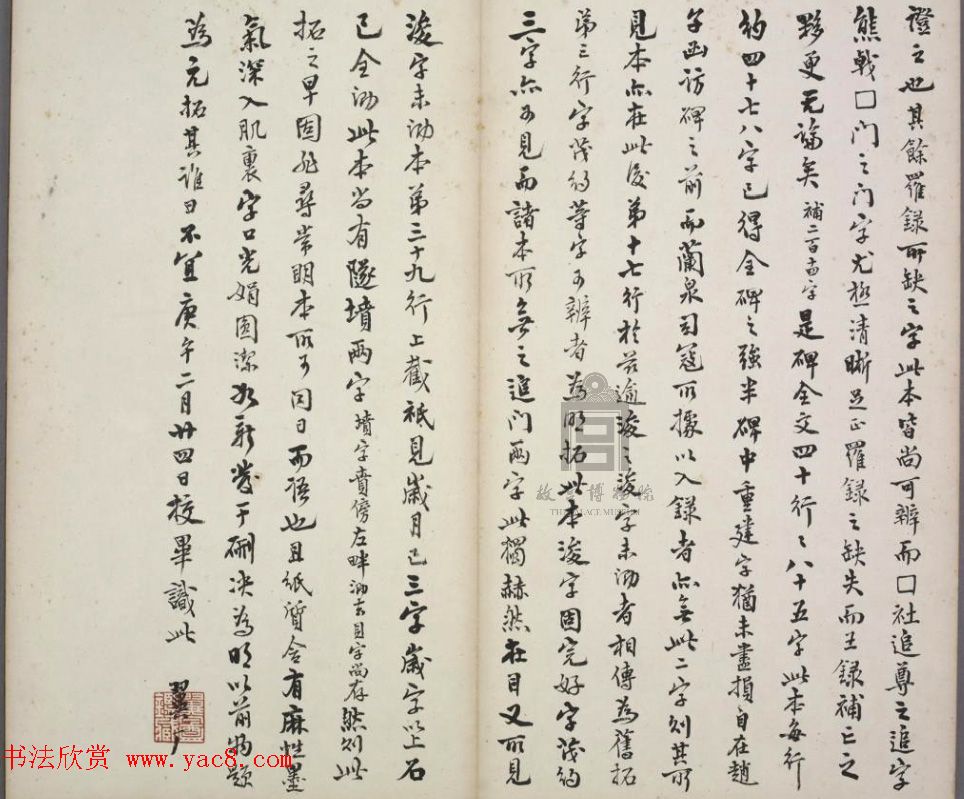 證之也其餘羅錄所缺之字此本皆尚可辨而口社追尊之追字
熊戟口門之门字尤極清晰足正羅錄之缺失而王錄補亡之
夥更无論矣補二百字是碑全文四十行々八十五字此本每行
約四十七八字已得全碑之強半碑中重建字猶未盡損自在趙
子函訪碑之前而蘭泉司寇所據以入錄者亦無此二字則其所
見本亦在此後第十七行於茲逾浚之浚字未泐者相傳為舊拓
第三行字茂約等字可辨者為明拓此本浚字固完好字茂約
三字亦可見而諸本所無之追门兩字此獨赫然在目又所見
浚字未泐本第三十九行上截祇見歲月已三字歲字以上石
已全泐此本尚有隧墳兩字墳字賁傍左畔泐去貝字尚存然則此
拓之早固非尋常明本所可同日而語也且紙質含有麻性墨
氣深入肌裏字口光娟圓潔如新發于硎決為明以前物題
為元拓其誰曰不宜庚午二月廿四日校畢識此
故宮博物院
THE PALACE MUSEUM
书法欣赏 www.yac8.com